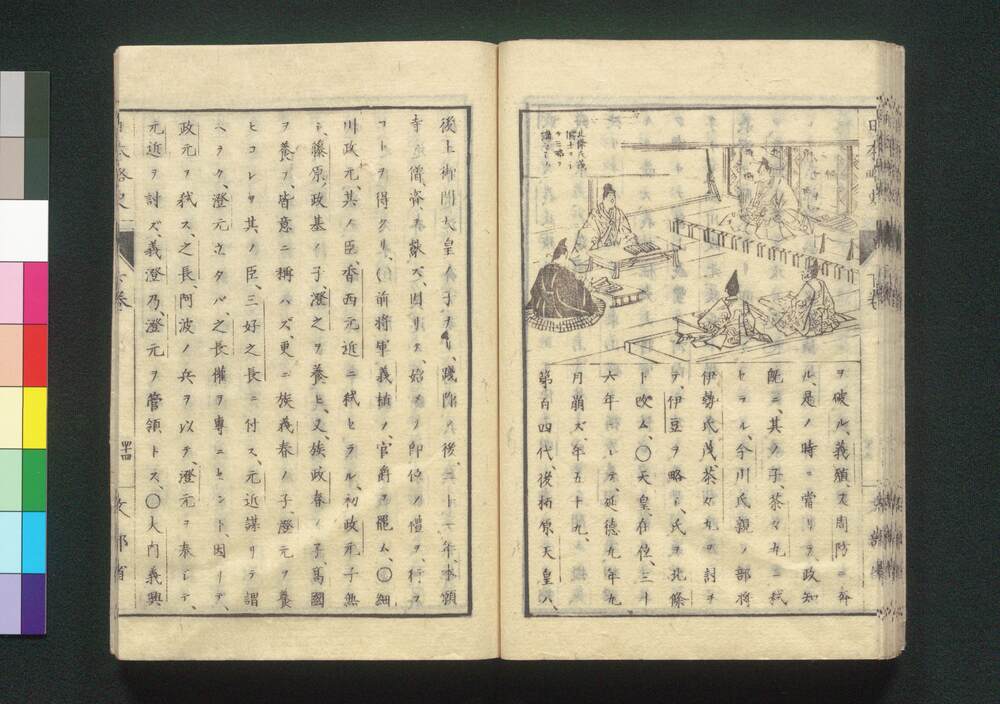 北條氏茂
儒士ヲシテ
三略ヲ
講セシム
ヲ破ル、義殖ス周防ニ奔
ル、是ノ時ニ當リテ、政知
既ニ、其ノ子、茶々丸ニ弑
セラル、今川氏親ノ部將
伊勢氏茂、茶々丸ヲ討チ
テ、伊豆ヲ略シ、氏ヲ北條
ト改ム、〇天皇、在位、三十
六年
月崩ズ、年五十九、
第百四代、後柏原天皇ハ、
後土御門天皇ノ子ナリ、踐阼ノ後、二十一年、本願
寺ノ僧
コトヲ得タリ、〇前將軍義植ノ、官爵ヲ罷ム、〇細
川政元、其ノ臣、香西元近ニ弑セラル、初政元、子無
シ、藤原ノ政基ノ子、澄之ヲ養ヒ、又、族政春ノ子、高國
ヲ養フ、皆意ニ稱ハズ、更ニ族義春ノ子、澄元ヲ養
ヒコレヲ其ノ臣、三好之長ニ付ス、元近謀リテ謂
ヘラク、澄元立タバ、之長權ヲ專ニセント、因リテ、
政元ヲ弑ス、之長、阿波ノ兵ヲ以テ、澄元ヲ奉ジテ、
元近ヲ討ズ、義澄乃、澄元ヲ管領トス、〇大内義興
四十四
文部省